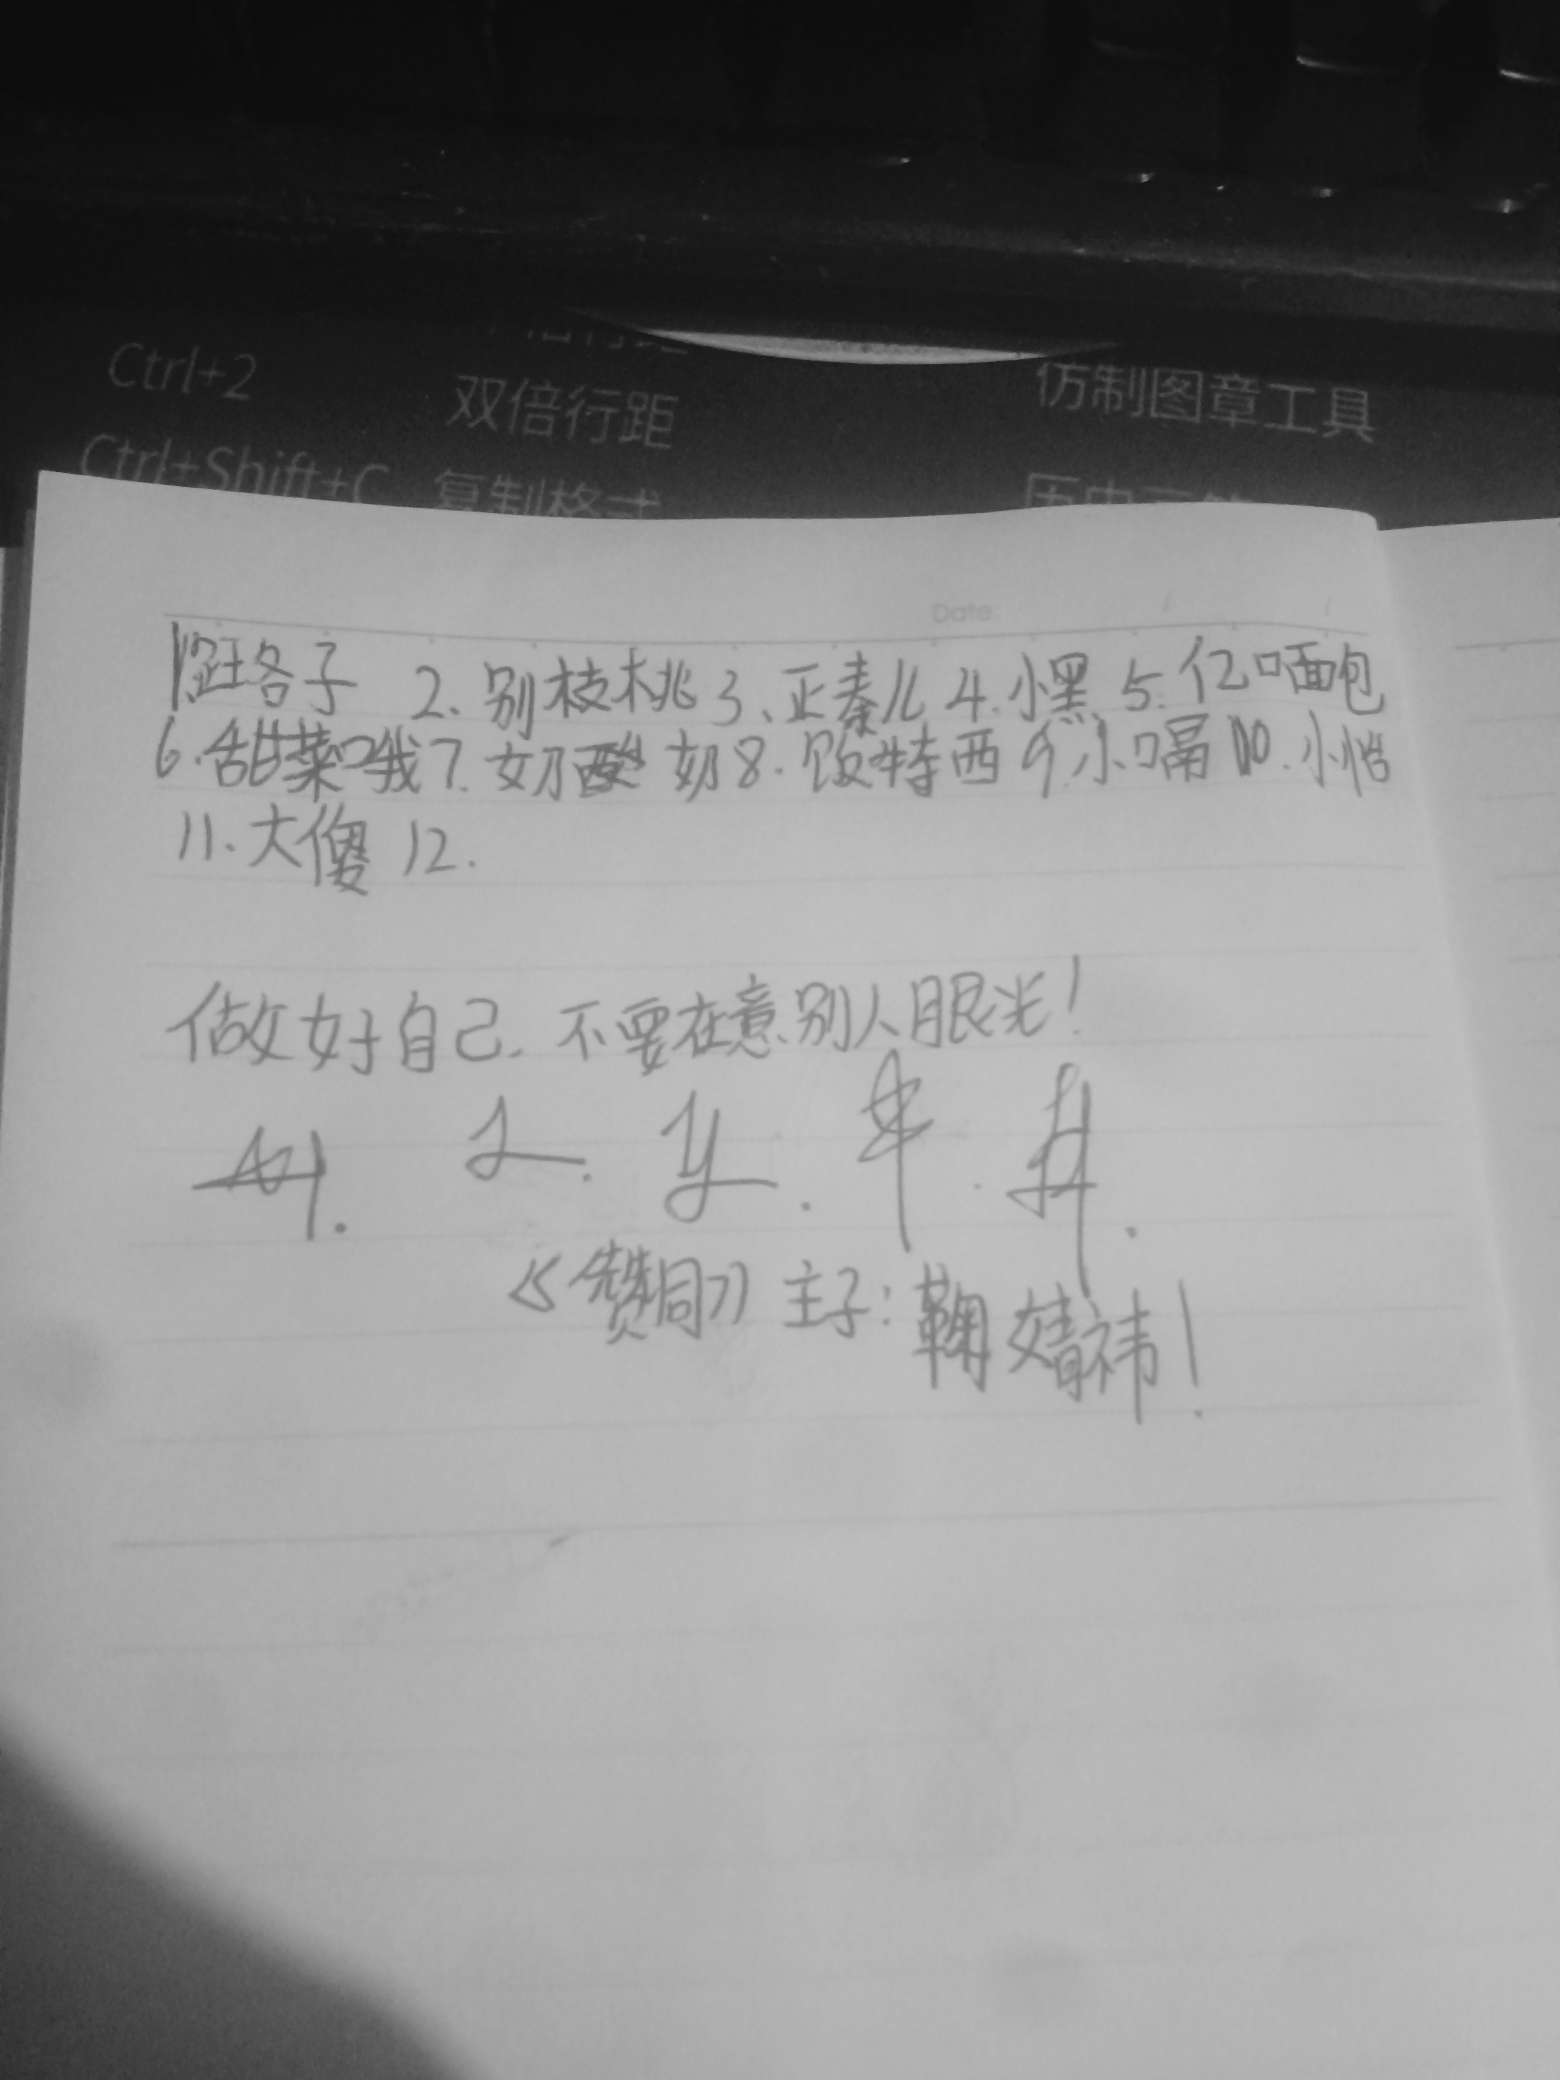 Ctrl+2 双倍行距 仿制图章工具
Ctrl+Shift+C 复制格式
Date:
各子 2、别枝桃 3、正秦儿 4.小黑 5.亿口面包
6.甜菜哦 7.奶酸奶 8.饭特西 9.小嗝 10.小怡
11、大傻 12.
做好自己.不要在意别人眼光!
《赞同》主子:鞠婧祎!